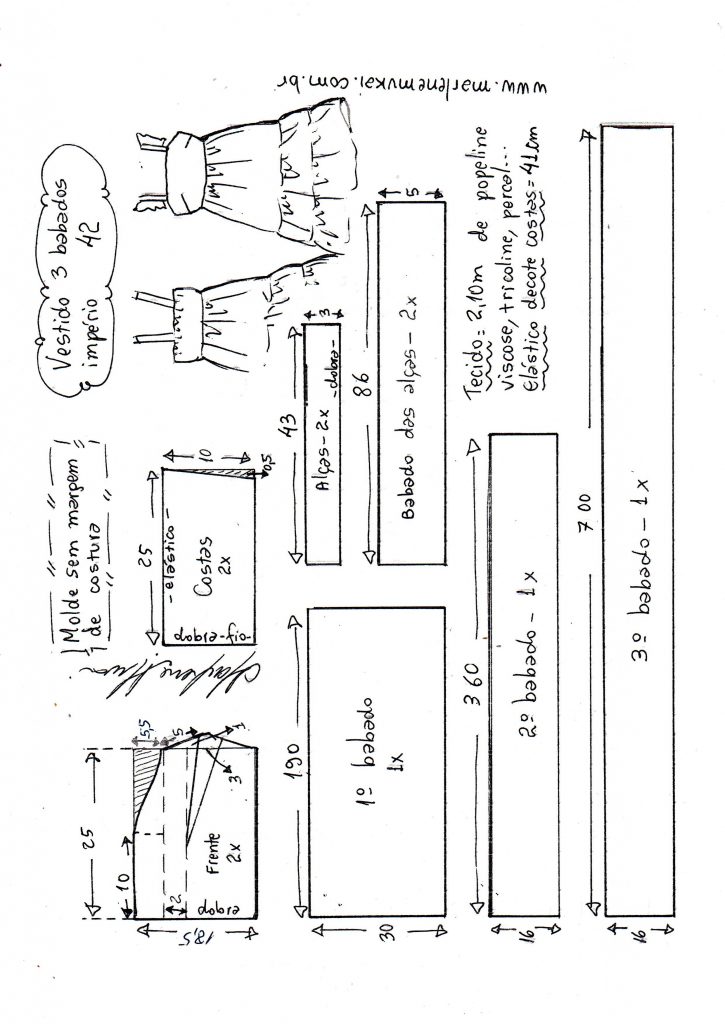 Vestido 3 babados
império 42
Molde sem margem
de costura
www.marlenemukai.com.br
25
10
5,5
5
1
3
2
18,5
Frente
2x
dobra
25
10
0,5
-elástico-
Costas
2x
dobra-fio-
43
3
Alças-2x -dobra-
86
5
Babado das alças-2x
190
30
1º babado
1x
360
16
2º babado-1x
Tecido= 2,10m de popeline
viscose, tricoline, percal...
Elástico decote costas=41cm
700
16
3º babado-1x